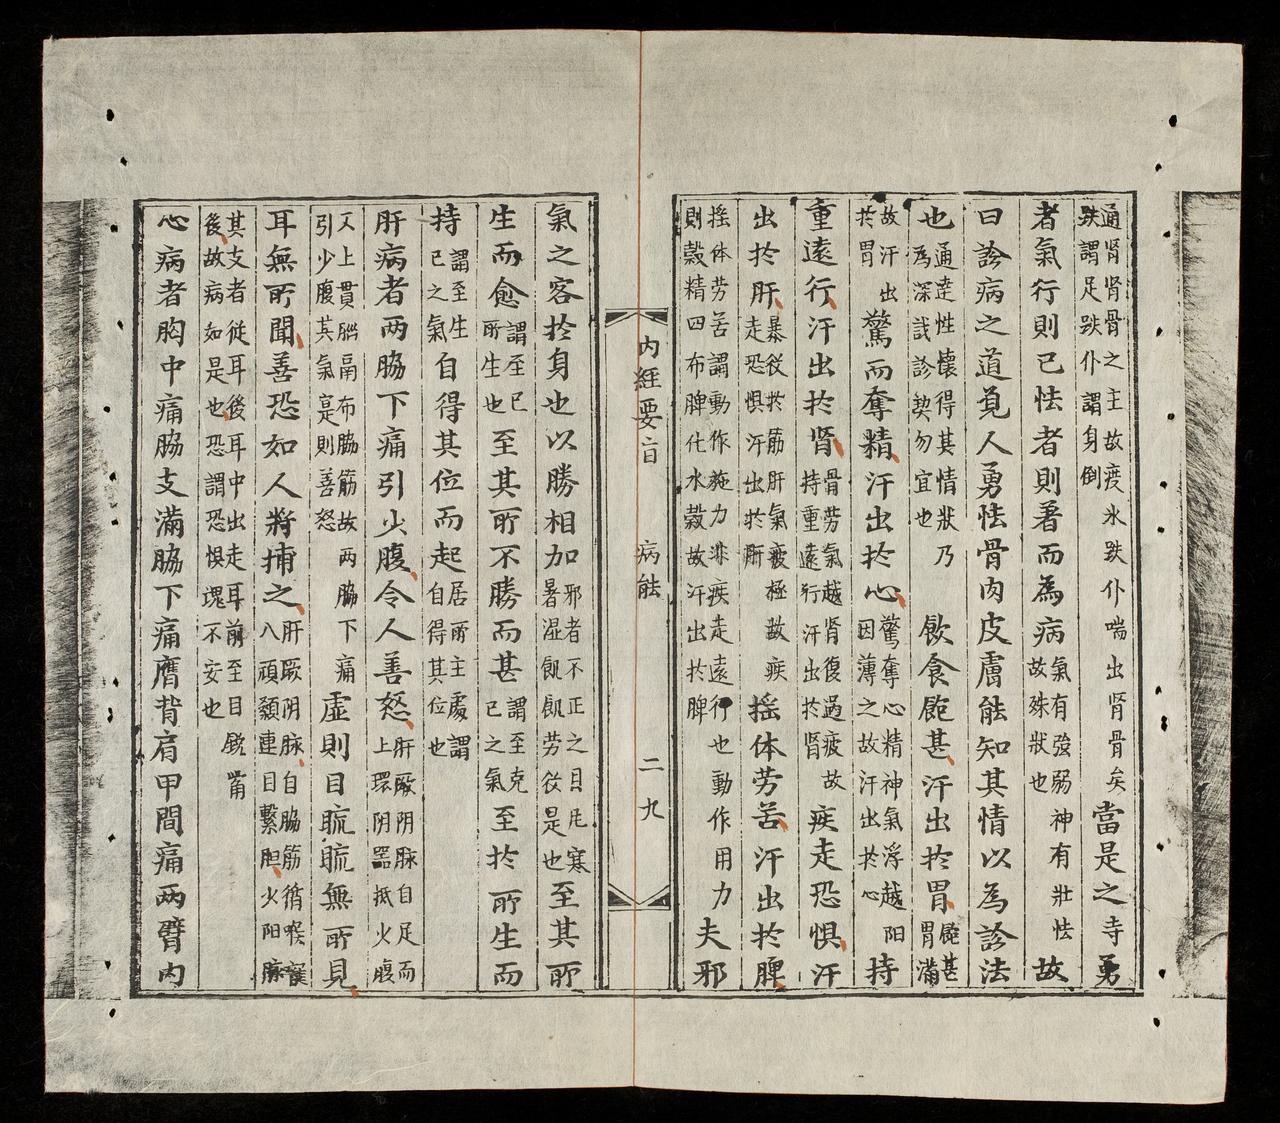 通腎腎骨之主故度氷跌仆喘出腎骨矣
跌謂足跌仆謂身倒
當是之寺勇
者氣行則已怯者則著而為病
氣有強弱神有壯怯
故殊狀也
故
曰診病之道覓人勇怯骨肉皮膚能知其情以為診法
也
通達性懷得其情狀乃
為深試診契勿宜也
飲食飽甚汗出於胃
飽甚
胃滿
故汗出
於胃
驚而奪精汗出於心
驚奪心精神氣浮越阳
因薄之故汗出於心
持
重遠行汗出於腎
骨劳氣越腎復過疲故
持重遠行汗出於腎
疾走恐惧汗
出於肝
暴役於筋肝氣疲極故疾
走恐惧汗出於肝
摇体劳苦汗出於脾
摇体劳苦謂動作施力非疾走遠行也動作用力
則穀精四布脾化水穀故汗出於脾
夫邪
内經要旨 病能 二九
氣之客於身也以勝相加
邪者不正之目凡寒
暑湿飢飽劳役是也
至其所
生而愈
謂至已
所生也
至其所不勝而甚
謂至克
已之氣
至於所生而
持
謂至生
已之氣
自得其位而起
居所主處謂
自得其位也
肝病者两脇下痛引少腹令人善怒
肝厥阴脉自足而
上環阴器抵火腹
又上貫膈布脇筋故两脇下痛
引少腹其氣寔則善怒
虚則目䀮䀮無所見
耳無所聞善恐如人将捕之
肝厥阴脉自脇筋循喉
八頑顙連目繫胆火阳脉
其支者從耳後耳中出走耳前至目銳觜
後故病如是也恐謂恐惧魂不安也
心病者胸中痛脇支滿脇下痛膺背肩甲間痛两臂内